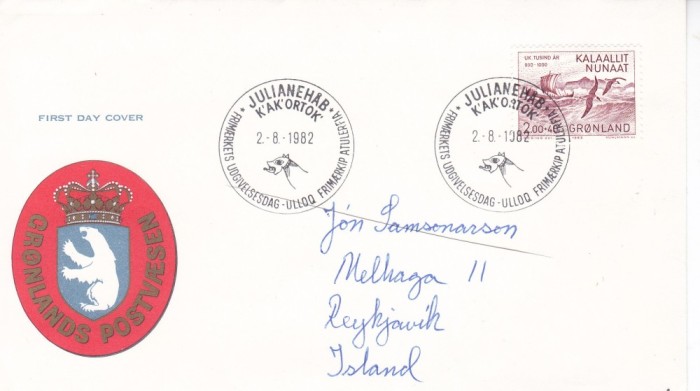 FIRST DAY COVER
GRØNLANDS POSTVÆSEN
* JULIANEHÅB *
K'AK'ORTOK'
2.-8.-1982
FRIMÆRKETS UDGIVELSESDAG - ULLOQ FRIMÆRKIP ATULERFIA
* JULIANEHÅB *
K'AK'ORTOK'
2.-8.-1982
FRIMÆRKETS UDGIVELSESDAG - ULLOQ FRIMÆRKIP ATULERFIA
KALAALLIT
NUNAAT
GRØNLAND
Jón Samsonarson
Melhaga 11
Reykjavik
Island